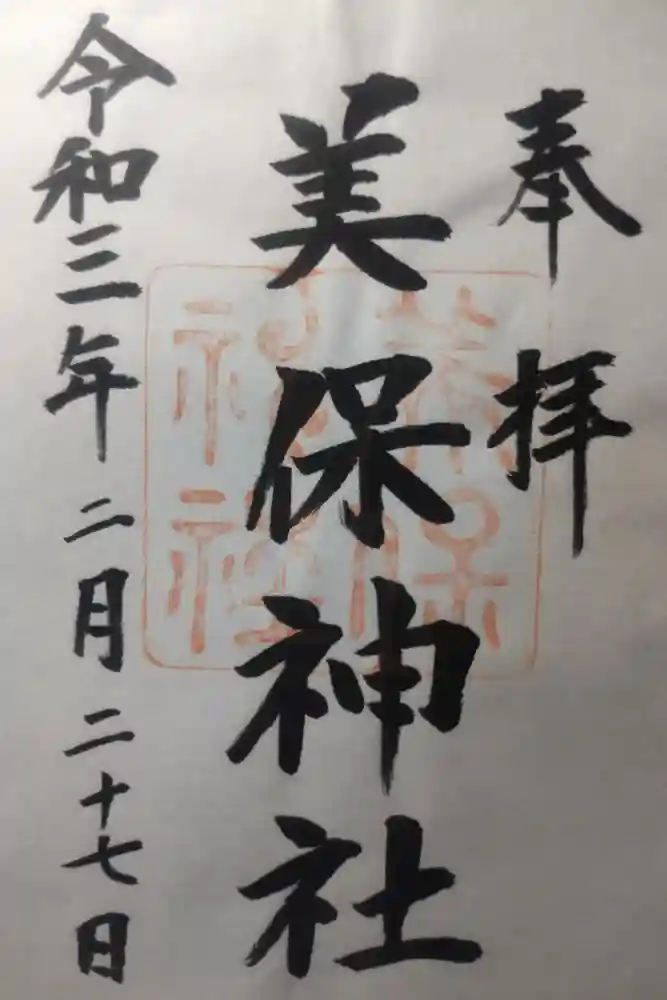 奉拝
美保神社
令和三年二月二十七日
美保神社